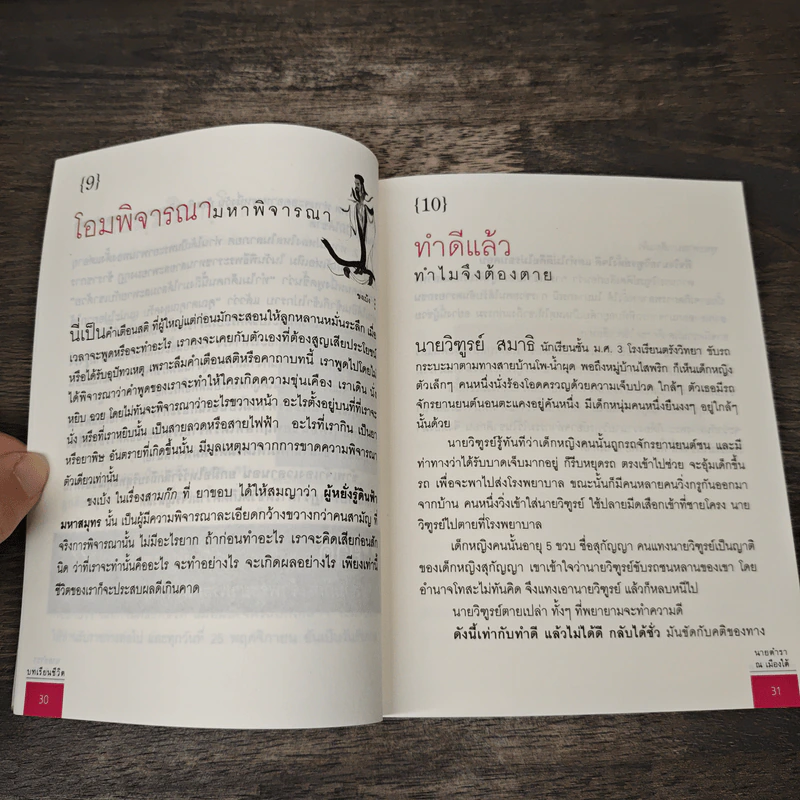 {9}
โอมพิจารณามหาพิจารณา
ขงเบ้ง
นี่เป็นคำเตือนสติ ที่ผู้ใหญ่แต่ก่อนมักจะสอนให้ลูกหลานหมั่นระลึก เมื่อ
เวลาจะพูดหรือจะทำอะไร เราคงจะเคยกับตัวเองที่ต้องสูญเสียประโยชน์
หรือได้รับอุบัทวเหตุ เพราะลืมคำเตือนสติหรือคาถาบทนี้ เราพูดไปโดยไม่
ได้พิจารณาว่าคำพูดของเราจะทำให้ใครเกิดความขุ่นเคือง เราเดิน นั่ง
หยิบ ฉวย โดยไม่ทันจะพิจารณาว่าอะไรขวางหน้า อะไรตั้งอยู่บนที่ที่เราจะ
นั่ง หรือที่เราหยิบนั้น เป็นสายลวดหรือสายไฟฟ้า อะไรที่เรากิน เป็นยา
หรือยาพิษ อันตรายที่เกิดขึ้นนั้น มีมูลเหตุมาจากการขาดความพิจารณา
ตัวเดียวเท่านั้น
ขงเบ้ง ในเรื่องสามก๊ก ที่ ยาขอบ ได้ให้สมญาว่า ผู้หยั่งรู้ดินฟ้า
มหาสมุทร นั้น เป็นผู้มีความพิจารณาละเอียดกว้างขวางกว่าคนสามัญ ที่
จริงการพิจารณานั้น ไม่มีอะไรยาก ถ้าก่อนทำอะไร เราจะคิดเสียก่อนสัก
นิด ว่าที่เราจะทำนั้นคืออะไร จะทำอย่างไร จะเกิดผลอย่างไร เพียงเท่านี้
ชีวิตของเราก็จะประสบผลดีเกินคาด
บทเรียนชีวิต
30
{10}
ทำดีแล้ว
ทำไมจึงต้องตาย
นายวิฑูรย์ สมาธิ นักเรียนชั้น ม.ศ. 3 โรงเรียนตรังวิทยา ขับรถ
กระบะมาตามทางสายบ้านโพ-น้ำผุด พอถึงหมู่บ้านไสพริก ก็เห็นเด็กหญิง
ตัวเล็กๆ คนหนึ่งนั่งร้องโอดครวญด้วยความเจ็บปวด ใกล้ๆ ตัวเธอมีรถ
จักรยานยนต์นอนตะแคงอยู่คันหนึ่ง มีเด็กหนุ่มคนหนึ่งยืนงงๆ อยู่ใกล้ๆ
นั้นด้วย
นายวิฑูรย์รู้ทันทีว่าเด็กหญิงคนนั้นถูกรถจักรยานยนต์ชน และมี
ท่าทางว่าได้รับบาดเจ็บมากอยู่ ก็รีบหยุดรถ ตรงเข้าไปช่วย จะอุ้มเด็กขึ้น
รถ เพื่อจะพาไปส่งโรงพยาบาล ขณะนั้นก็มีคนหลายคนวิ่งกรูกันออกมา
จากบ้าน คนหนึ่งวิ่งเข้าใส่นายวิฑูรย์ ใช้ปลายมีดเสือกเข้าที่ชายโครง นาย
วิฑูรย์ไปตายที่โรงพยาบาล
เด็กหญิงคนนั้นอายุ 5 ขวบ ชื่อสุกัญญา คนแทงนายวิฑูรย์เป็นญาติ
ของเด็กหญิงสุกัญญา เขาเข้าใจว่านายวิฑูรย์ขับรถชนหลานของเขา โดย
อำนาจโทสะไม่ทันคิด จึงแทงเอานายวิฑูรย์ แล้วก็หลบหนีไป
นายวิฑูรย์ตายเปล่า ทั้งๆ ที่พยายามจะทำความดี
ดังนี้เท่ากับทำดี แล้วไม่ได้ดี กลับได้ชั่ว มันขัดกับคติของทาง
นายตำรา
ณ เมืองใต้
31